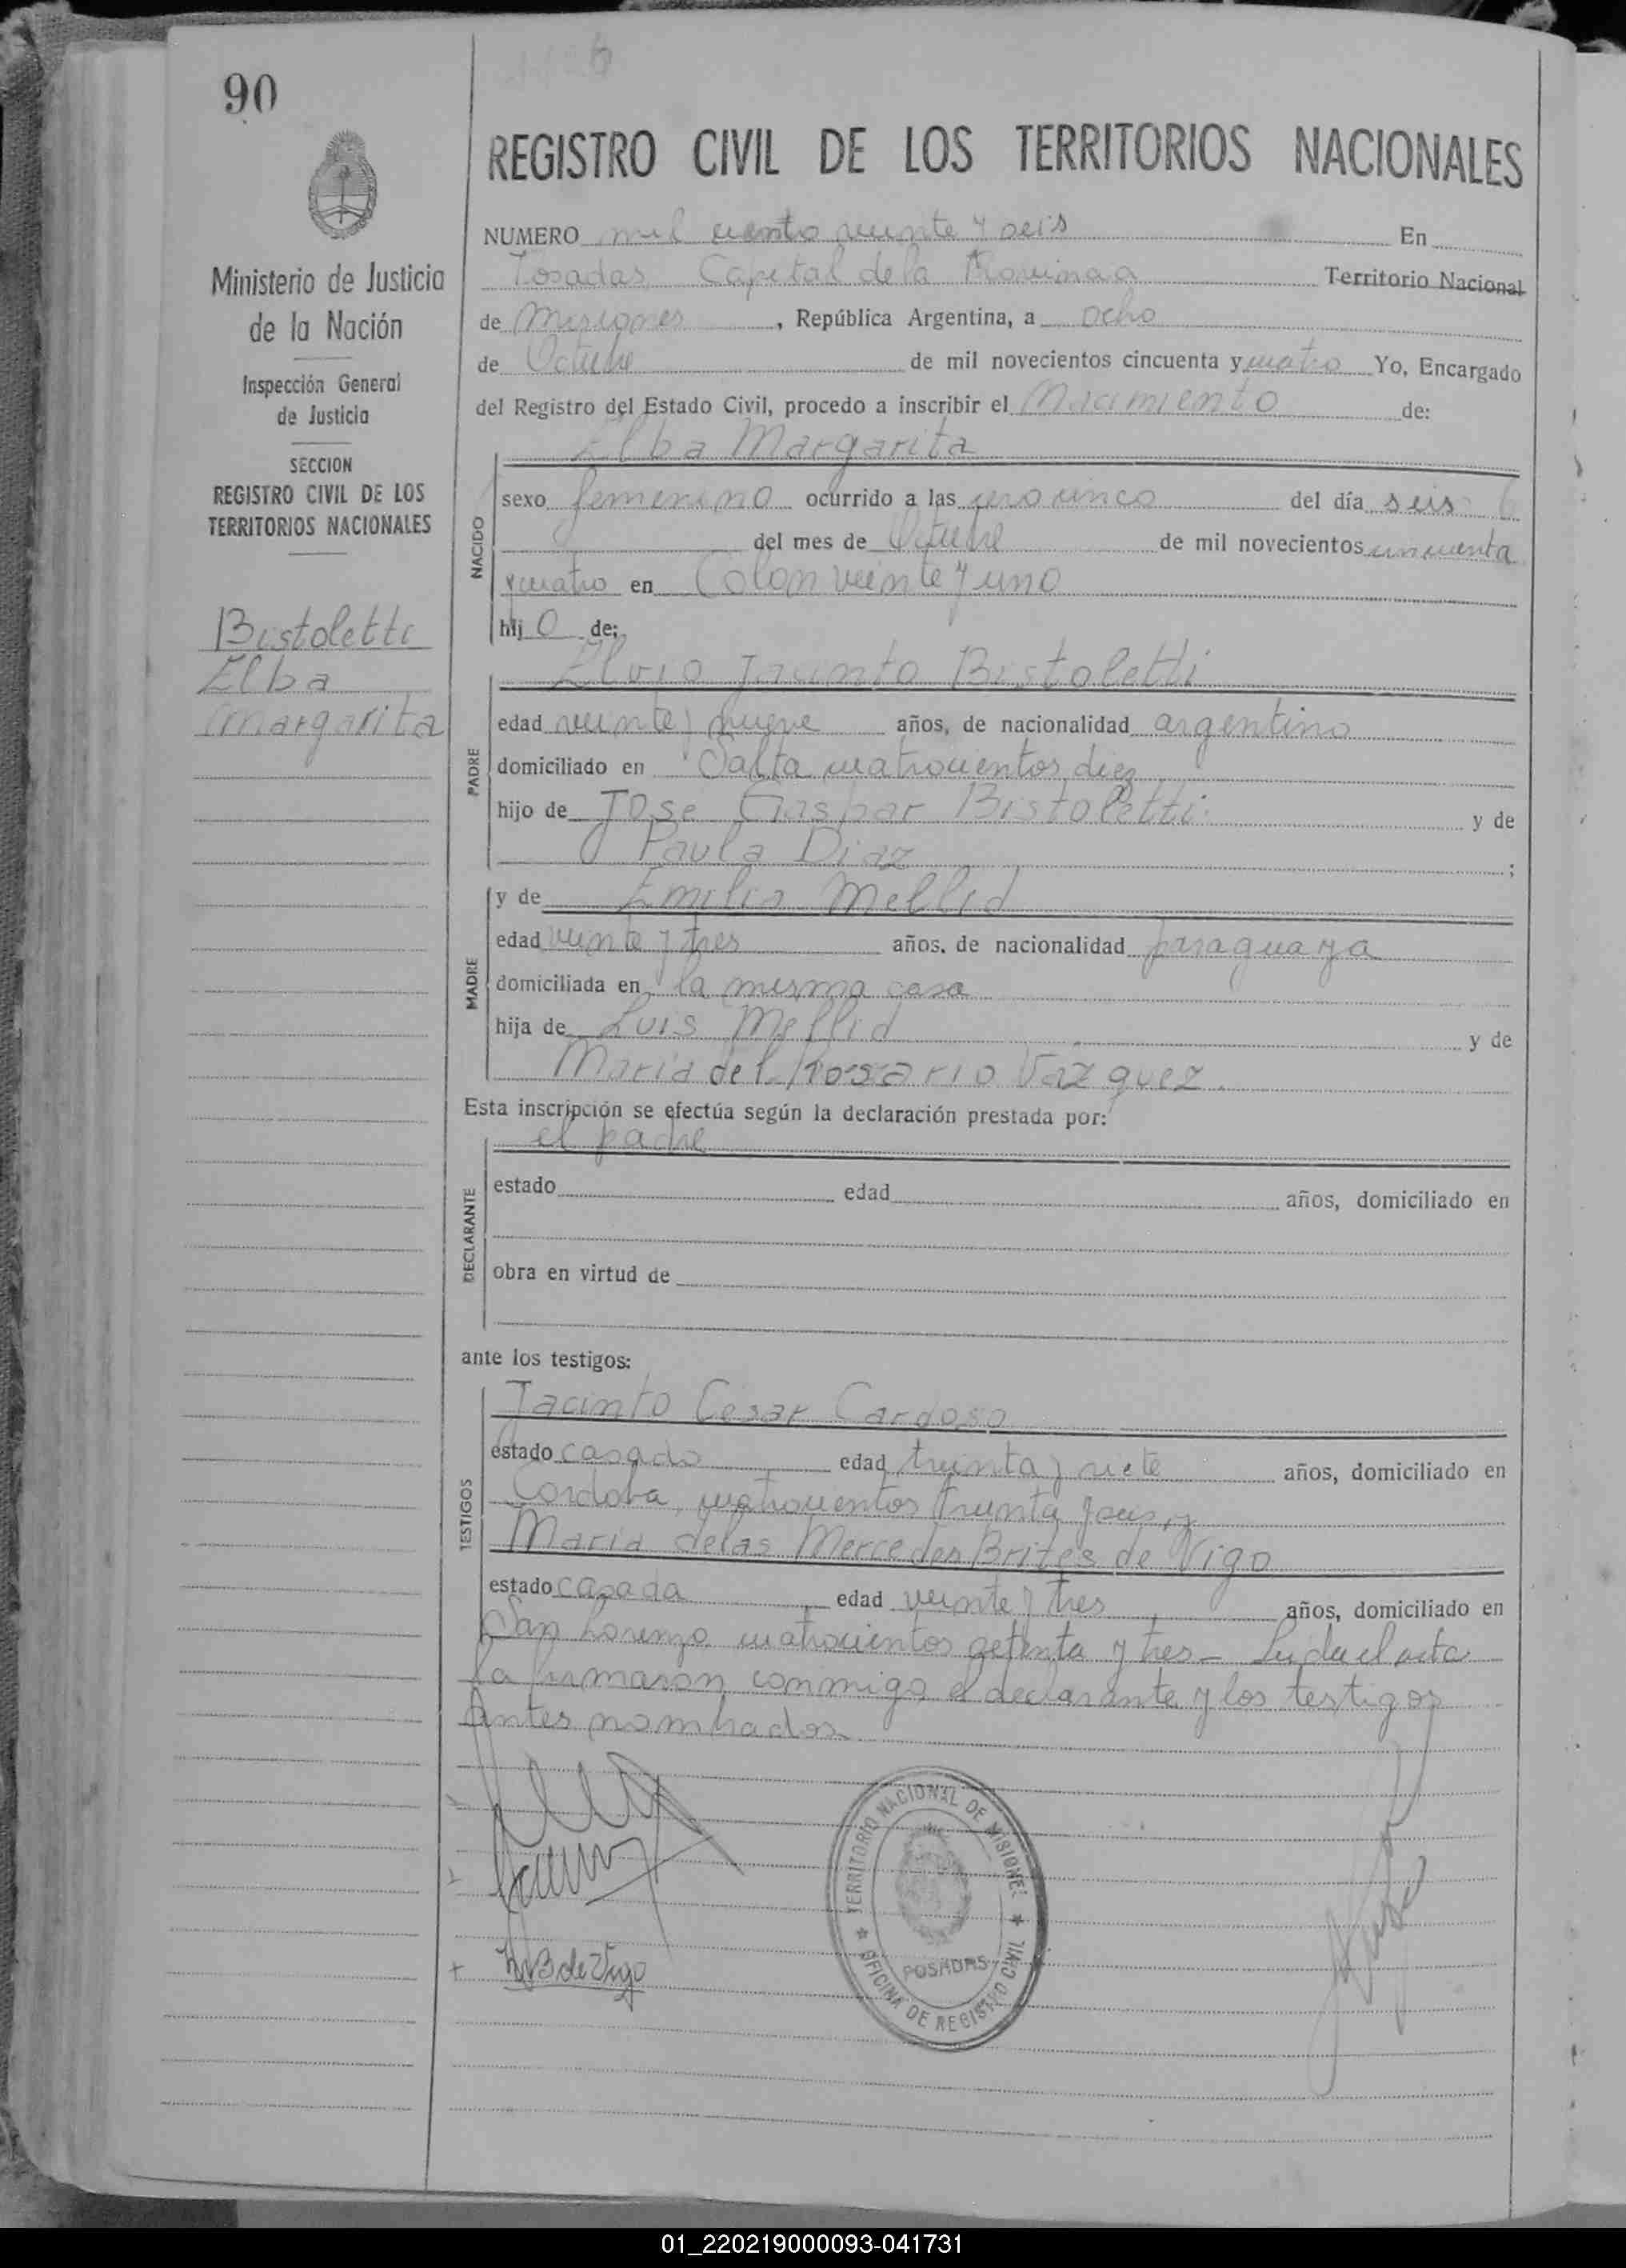 90
REGISTRO CIVIL DE LOS TERRITORIOS NACIONALES
Ministerio de Justicia
de la Nación
Inspección General
de Justicia
SECCION
REGISTRO CIVIL DE LOS
TERRITORIOS NACIONALES
Bistoletti
Elba
Margarita
NUMERO mil ciento veinte y seis En
Posadas, Capital de la Provincia Territorio Nacional
de Misiones, República Argentina, a ocho
de Octubre de mil novecientos cincuenta y cuatro Yo, Encargado
del Registro del Estado Civil, procedo a inscribir el Nacimiento de:
NACIDO
Elba Margarita
sexo femenino ocurrido a las cero cinco del día seis 6
del mes de Octubre de mil novecientos cincuenta
y cuatro en Colon veinte y uno
hij o de:
PADRE
Elvio Jacinto Bistoletti
edad veinte y nueve años, de nacionalidad argentino
domiciliado en Salta cuatrocientos diez
hijo de Jose Gaspar Bistoletti y de
Paula Diaz ;
MADRE
y de Emilia Mellid
edad veinte y tres años, de nacionalidad paraguaya
domiciliada en la misma casa
hija de Luis Mellid y de
Maria del Rosario Vazquez.
Esta inscripción se efectúa según la declaración prestada por:
DECLARANTE
el padre
estado edad años, domiciliado en
obra en virtud de
ante los testigos:
TESTIGOS
Jacinto Cesar Cardoso
estado casado edad treinta y siete años, domiciliado en
Cordoba, cuatrocientos treinta y seis, y
Maria de las Mercedes Brites de Vigo
estado casada edad veinte y tres, años, domiciliado en
San Lorenzo cuatrocientos setenta y tres - Leida el acta
la firmaron conmigo el declarante y los testigos
antes nombrados
M B de Vigo
TERRITORIO NACIONAL DE MISIONES
POSADAS
OFICINA DE REGISTRO CIVIL
01_220219000093-041731